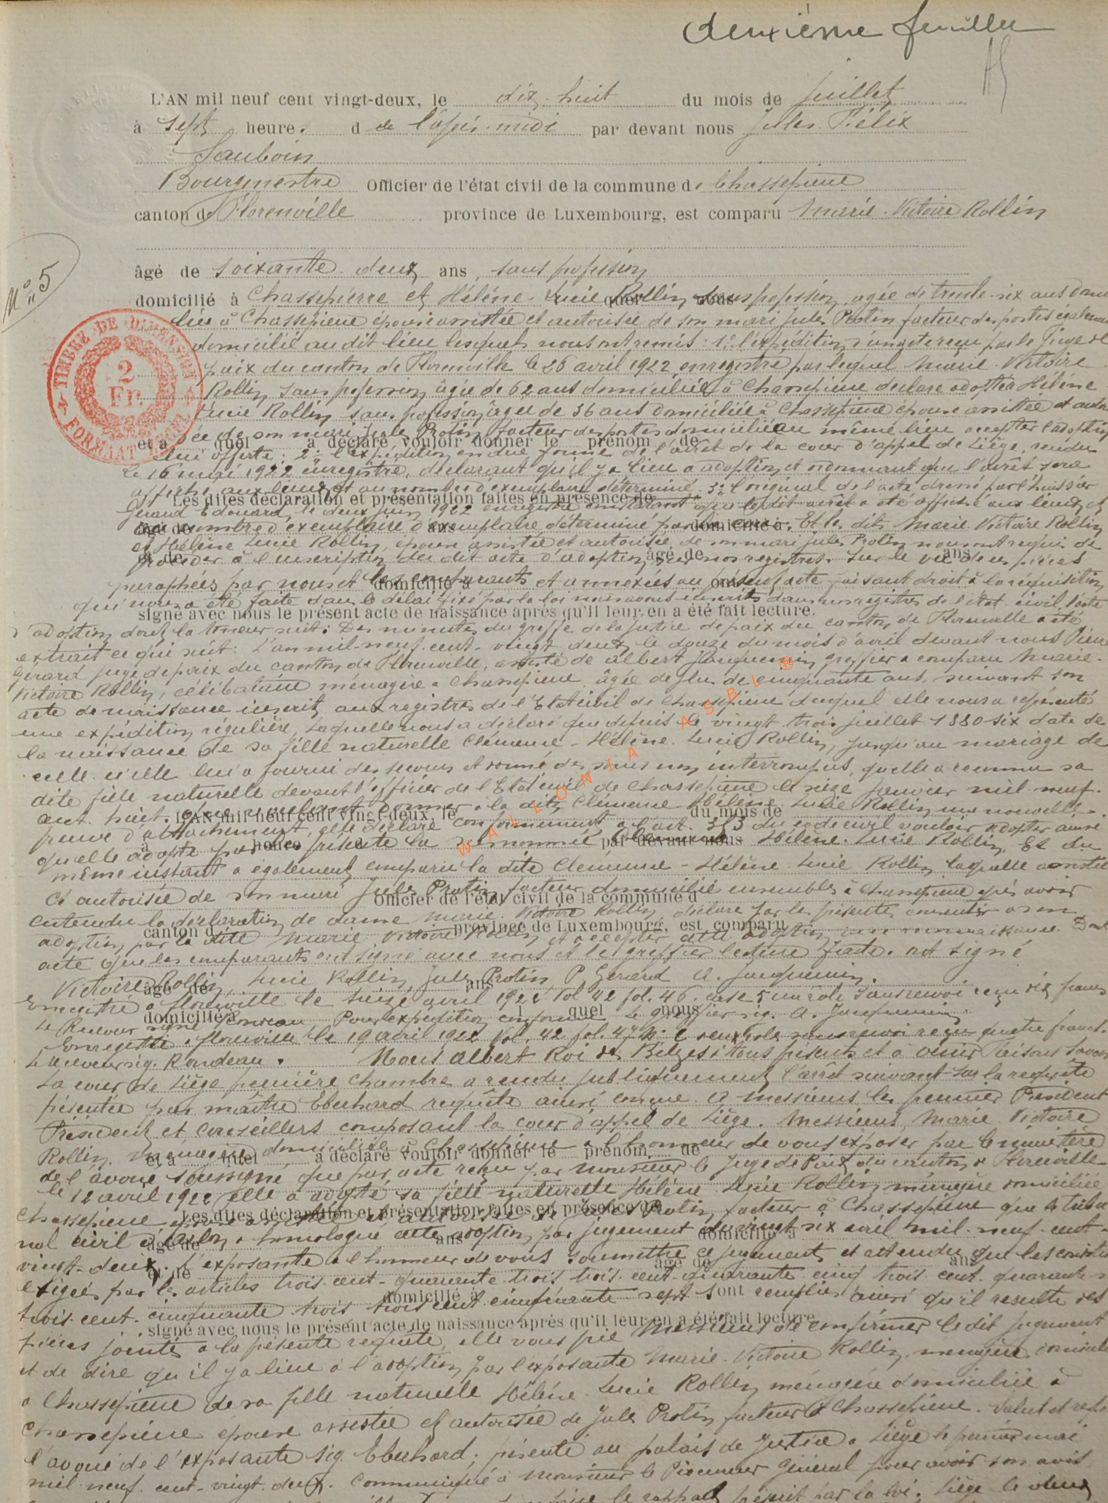 deuxième feuillet
L'AN mil neuf cent vingt-deux, le dix-huit du mois de juillet
à sept heure. d de l'après-midi par devant nous Jules Félix
Sauboin
Bourgmestre Officier de l'état civil de la commune d Chassepierre
canton de Florenville province de Luxembourg, est comparu Marie-Victoire Rollin
âgé de soixante deux ans, sans profession
N° 5
domicilié à Chassepierre et Hélène-Lucie Rollin sans profession, agée de trente-six ans domi
liée à Chassepierre épouse assistée et autorisée de son mari Jules Protin facteur des postes
domicilié au dit lieu lesquels nous ont remis: 1° l'expédition d'un acte reçu par le Juge de
TIMBRE DE DIMENSION
2 Fr.
paix du canton de Florenville le 26 avril 1922 enregistré par lequel Marie-Victoire
Rollin sans profession agée de 62 ans domiciliée à Chassepierre déclare adopter Hélène
Lucie Rollin sans profession agée de 36 ans domiciliée à Chassepierre épouse assistée et auto
sée de son mari Jules Protin facteur des postes domicilié au même lieu accepter l'adoption
et a quel a déclaré vouloir donner le prénom de
lui offerte: 2° l'expédition en due forme de l'arrêt de la cour d'appel de Liège, rendu
le 16 mai 1922 enregistré, déclarant qu'il y a lieu à adoption et ordonnant que l'arrêt sera
affiché aux lieux et au nombre d'exemplaire déterminé: 3° l'original de l'acte dressé par l'huissier
Les dites déclaration et présentation faites en présence de
Gérard Edouard, le deux juin 1922 enregistré constatant que le dit arrêt a été affiché aux lieux et
au nombre d'exemplaire déterminé par la cour. Et la dite Marie Victoire Rollin
et Hélène Lucie Rollin, épouse assistée et autorisée de son mari Jules Protin nous ont requis de
procéder à l'inscription du dit acte d'adoption sur nos registres. Sur le vu de ces pièces
paraphées par nous et les comparants et annexées au présent acte faisant droit à la réquisition
qui nous a été faite dans le délai fixé par la loi nous avons inscrit dans nos registres de l'état civil l'acte
signé avec nous le présent acte de naissance après qu'il leur en a été fait lecture.
d'adoption dont la teneur suit: Des minutes du greffe de la justice de paix du canton de Florenville a été
extrait ce qui suit: L'an mil-neuf-cent-vingt-deux le douze du mois d'avril devant nous Pierre
Gérard juge de paix du canton de Florenville, assisté de Albert Jacquemin greffier a comparu Marie-
Victoire Rollin, célibataire ménagère à Chassepierre, agée de plus de cinquante ans, suivant son
acte de naissance inscrit aux registres de l'Etat civil de Chassepierre duquel elle nous a représenté
une expédition régulière, laquelle nous a déclaré que depuis le vingt trois juillet 1880 six date de
la naissance de sa fille naturelle Clémence-Hélène-Lucie Rollin, jusqu'au mariage de
celle-ci elle lui a fourni des secours et donné des soins non interrompus, qu'elle a reconnu sa
dite fille naturelle devant l'officier de l'Etat civil de Chassepierre le seize janvier mil-neuf-
cent-huit. que voulant donner à la dite Clémence Hélène-Lucie Rollin une nouvelle
L'AN mil neuf cent vingt-deux, le du mois de
preuve d'attachement, elle déclare conformément à l'art. 343 du code civil vouloir adopter ainsi
qu'elle adopte par les présentes la surnommée Clémence-Hélène-Lucie Rollin. Et au
même instant a également comparu la dite Clémence-Hélène Lucie Rollin laquelle assistée
et autorisée de son mari Jules Protin facteur domicilié ensemble à Chassepierre après avoir
Officier de l'état civil de la commune d
entendu la déclaration de dame Marie-Victoire Rollin déclare par les présentes consentir à son
canton d province de Luxembourg, est comparu
adoption par la dite Marie Victoire Rollin et accepter cette adoption avec reconnaissance. Dont
acte que les comparants ont signé avec nous et le greffier lecture faite. ont signé
Victoire Rollin, Lucie Rollin, Jules Protin P. Gérard A. Jacquemin.
Enregistré à Florenville le treize avril 1922 vol 42 fol. 46. case 5 un rôle sans renvoi reçu dix francs
Le Receveur signé Rondeau Pour expédition conforme Le greffier sig. A. Jacquemin.
Enregistré à Florenville le 19 avril 1922 Vol. 42 fol. 47 deux rôles sans renvoi reçu quatre francs.
Le Receveur sig. Rondeau. Nous Albert Roi des Belges à tous présents et à venir faisons savoir
La cour de Liège première chambre a rendu publiquement l'arrêt suivant sur la requête
présentée par maître Eberhard requête ainsi conçue. A messieurs les premier Président
Président et conseillers composant la cour d'appel de Liège. Messieurs, Marie Victoire
Rollin, ménagère domiciliée à Chassepierre a l'honneur de vous exposer par le ministère
et a quel a déclaré vouloir donner le prénom de
de l'avoué soussigné que par acte reçu par monsieur le Juge de Paix du canton de Florenville
le 12 avril 1922 elle a adopté sa fille naturelle Hélène-Lucie Rollin ménagère domiciliée
Les dites déclaration et présentation faites en présence de
Chassepierre épouse assistée et autorisée de Jules Protin, facteur à Chassepierre que le tribu
nal civil d'Arlon a homologué cette adoption par jugement du vingt six avril mil-neuf-cent-
vingt-deux. L'exposante a l'honneur de vous soumettre ce jugement et attendu que les conditions
exigées par les articles trois-cent-quarante trois trois-cent-quarante cinq trois cent quarante-s
trois-cent-cinquante trois trois cent cinquante sept sont remplies ainsi qu'il résulte des
signé avec nous le présent acte de naissance après qu'il leur en a été fait lecture.
pièces jointes à la présente requête, elle vous prie Messieurs de confirmer le dit jugement
et de dire qu'il y a lieu à l'adoption par l'exposante Marie-Victoire Rollin, ménagère domiciliée
à Chassepierre de sa fille naturelle Hélène-Lucie Rollin ménagère domiciliée à
Chassepierre épouse assistée et autorisée de Jules Protin facteur à Chassepierre. Salut et respect
l'avoué de l'exposante sig. Eberhard, présenté au palais de Justice à Liège le premier mai
mil-neuf-cent-vingt-deux. Communiqué à Monsieur le Procureur Général pour avoir son avis
WALLONIA ASBL ©